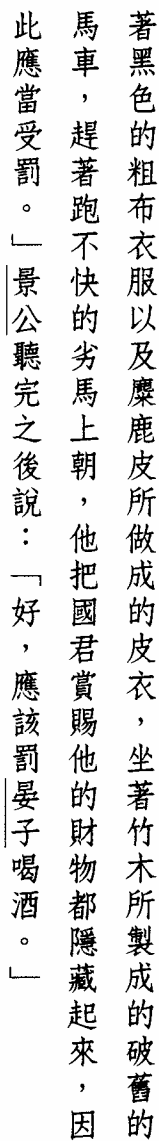 著黑色的粗布衣服以及麋鹿皮所做成的皮衣，坐著竹木所製成的破舊的
馬車，趕著跑不快的劣馬上朝，他把國君賞賜他的財物都隱藏起來，因
此應當受罰。」景公聽完之後說：「好，應該罰晏子喝酒。」